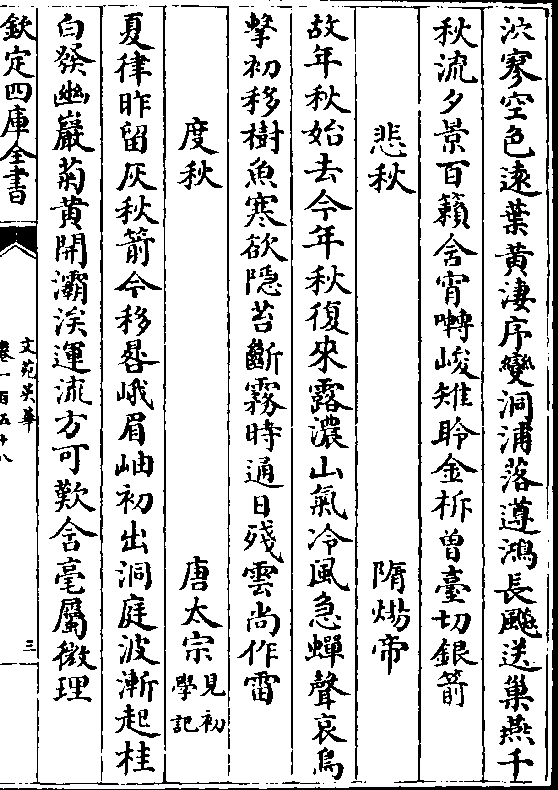 泬寥空色遠葉黃淒序變洞浦落遵鴻長飈送巢燕千
秋流夕景百籟含宵囀峻雉聆金柝曾臺切銀箭
悲秋 隋煬帝
故年秋始去今年秋復來露濃山氣冷風急蟬聲哀鳥
擊初移樹魚寒欲隠苔斷霧時通日殘雲尚作雷
度秋 唐太宗見初學記
夏律昨留灰秋箭今移晷峨眉岫初出洞庭波漸起桂
白發幽巖菊黃開灞涘運流方可歎含毫屬微理
欽定四庫全書
文苑英華
卷一百五十八
三